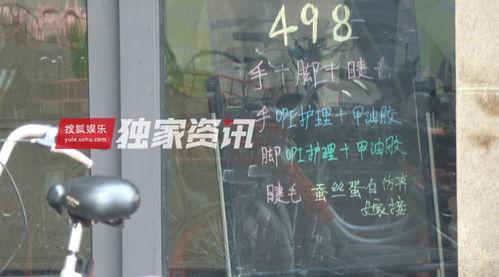 498
手+脚+睫毛
搜狐娱乐
yule.sohu.com
独家资讯
手OPI护理+甲油胶
脚OPI护理+甲油胶
睫毛 蚕丝蛋白仿真
嫁接